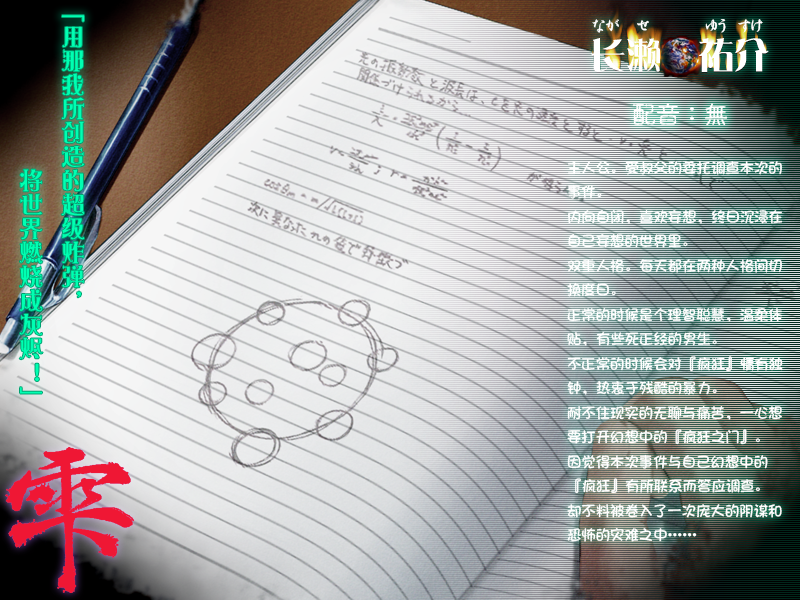 「用那我所创造的超级炸弹，
将世界燃烧成灰烬！」
雫
ながせ ゆうすけ
长濑祐介
配音：無
主人公。受叔父的委托调查本次的
事件。
内向自闭，喜欢妄想，终日沉浸在
自己妄想的世界里。
双重人格。每天都在两种人格间切
换度日。
正常的时候是个理智聪慧，温柔体
贴，有些死正经的男生。
不正常的时候会对『疯狂』情有独
钟，热衷于残酷的暴力。
耐不住现实的无聊与痛苦，一心想
要打开幻想中的『疯狂之门』。
因觉得本次事件与自己幻想中的
『疯狂』有所联系而答应调查。
却不料被卷入了一次庞大的阴谋和
恐怖的灾难之中……
光の振動数と波長は、cを光の速度と
関係づけられるから…
次に異なったnの値で